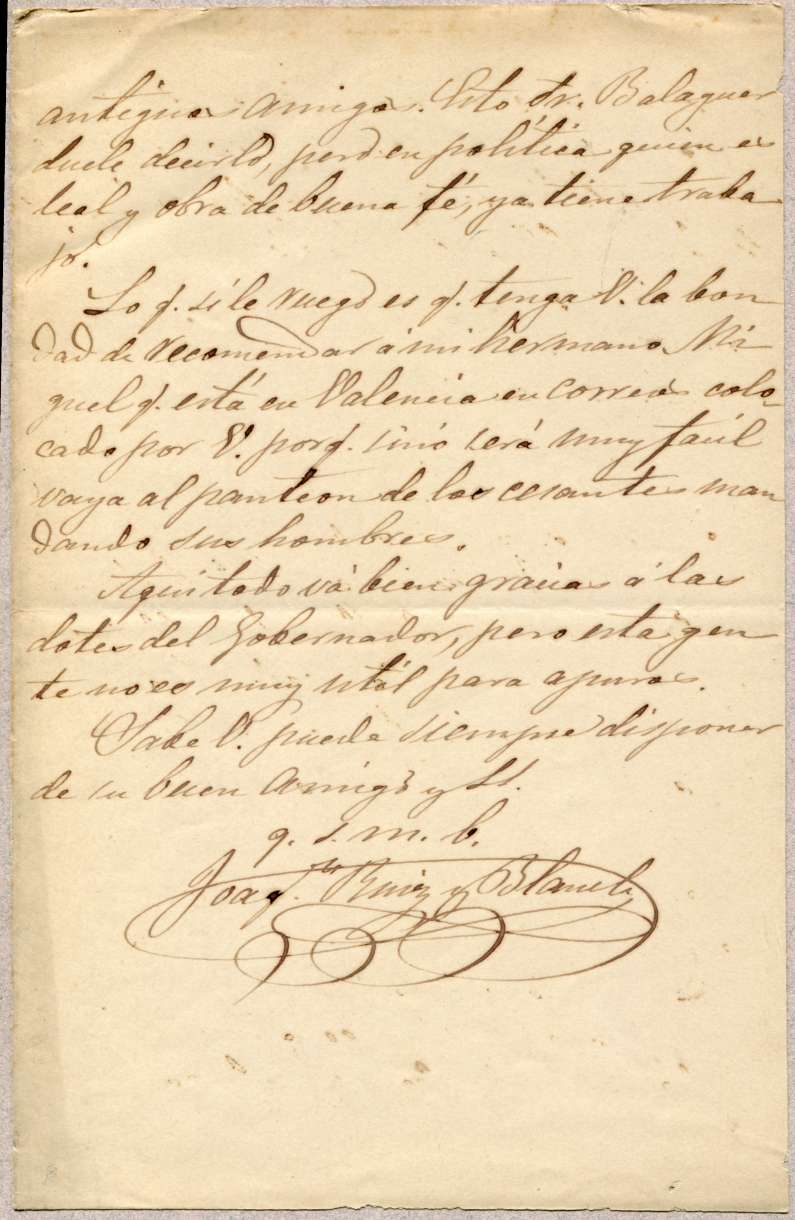 antiguos amigos. Esto Sr. Balaguer
duele decirlo, pero en política quien es
leal y obra de buena fé, ya tiene traba
jo.
Lo q. si le ruego es q. tenga V. la bon
dad de recomendar á mi hermano Mi
guel q. está en Valencia en correos colo-
cado por V. porq. sinó será muy facil
vaya al panteon de los cesantes man
dando sus hombres.
Aqui todo vá bien gracias á las
dotes del Gobernador, pero esta gen
te no es muy util para apuros.
Sabe V. puede siempre disponer
de su buen amigo y SS.
q. s. m. b.
Joaq.n Ruiz y